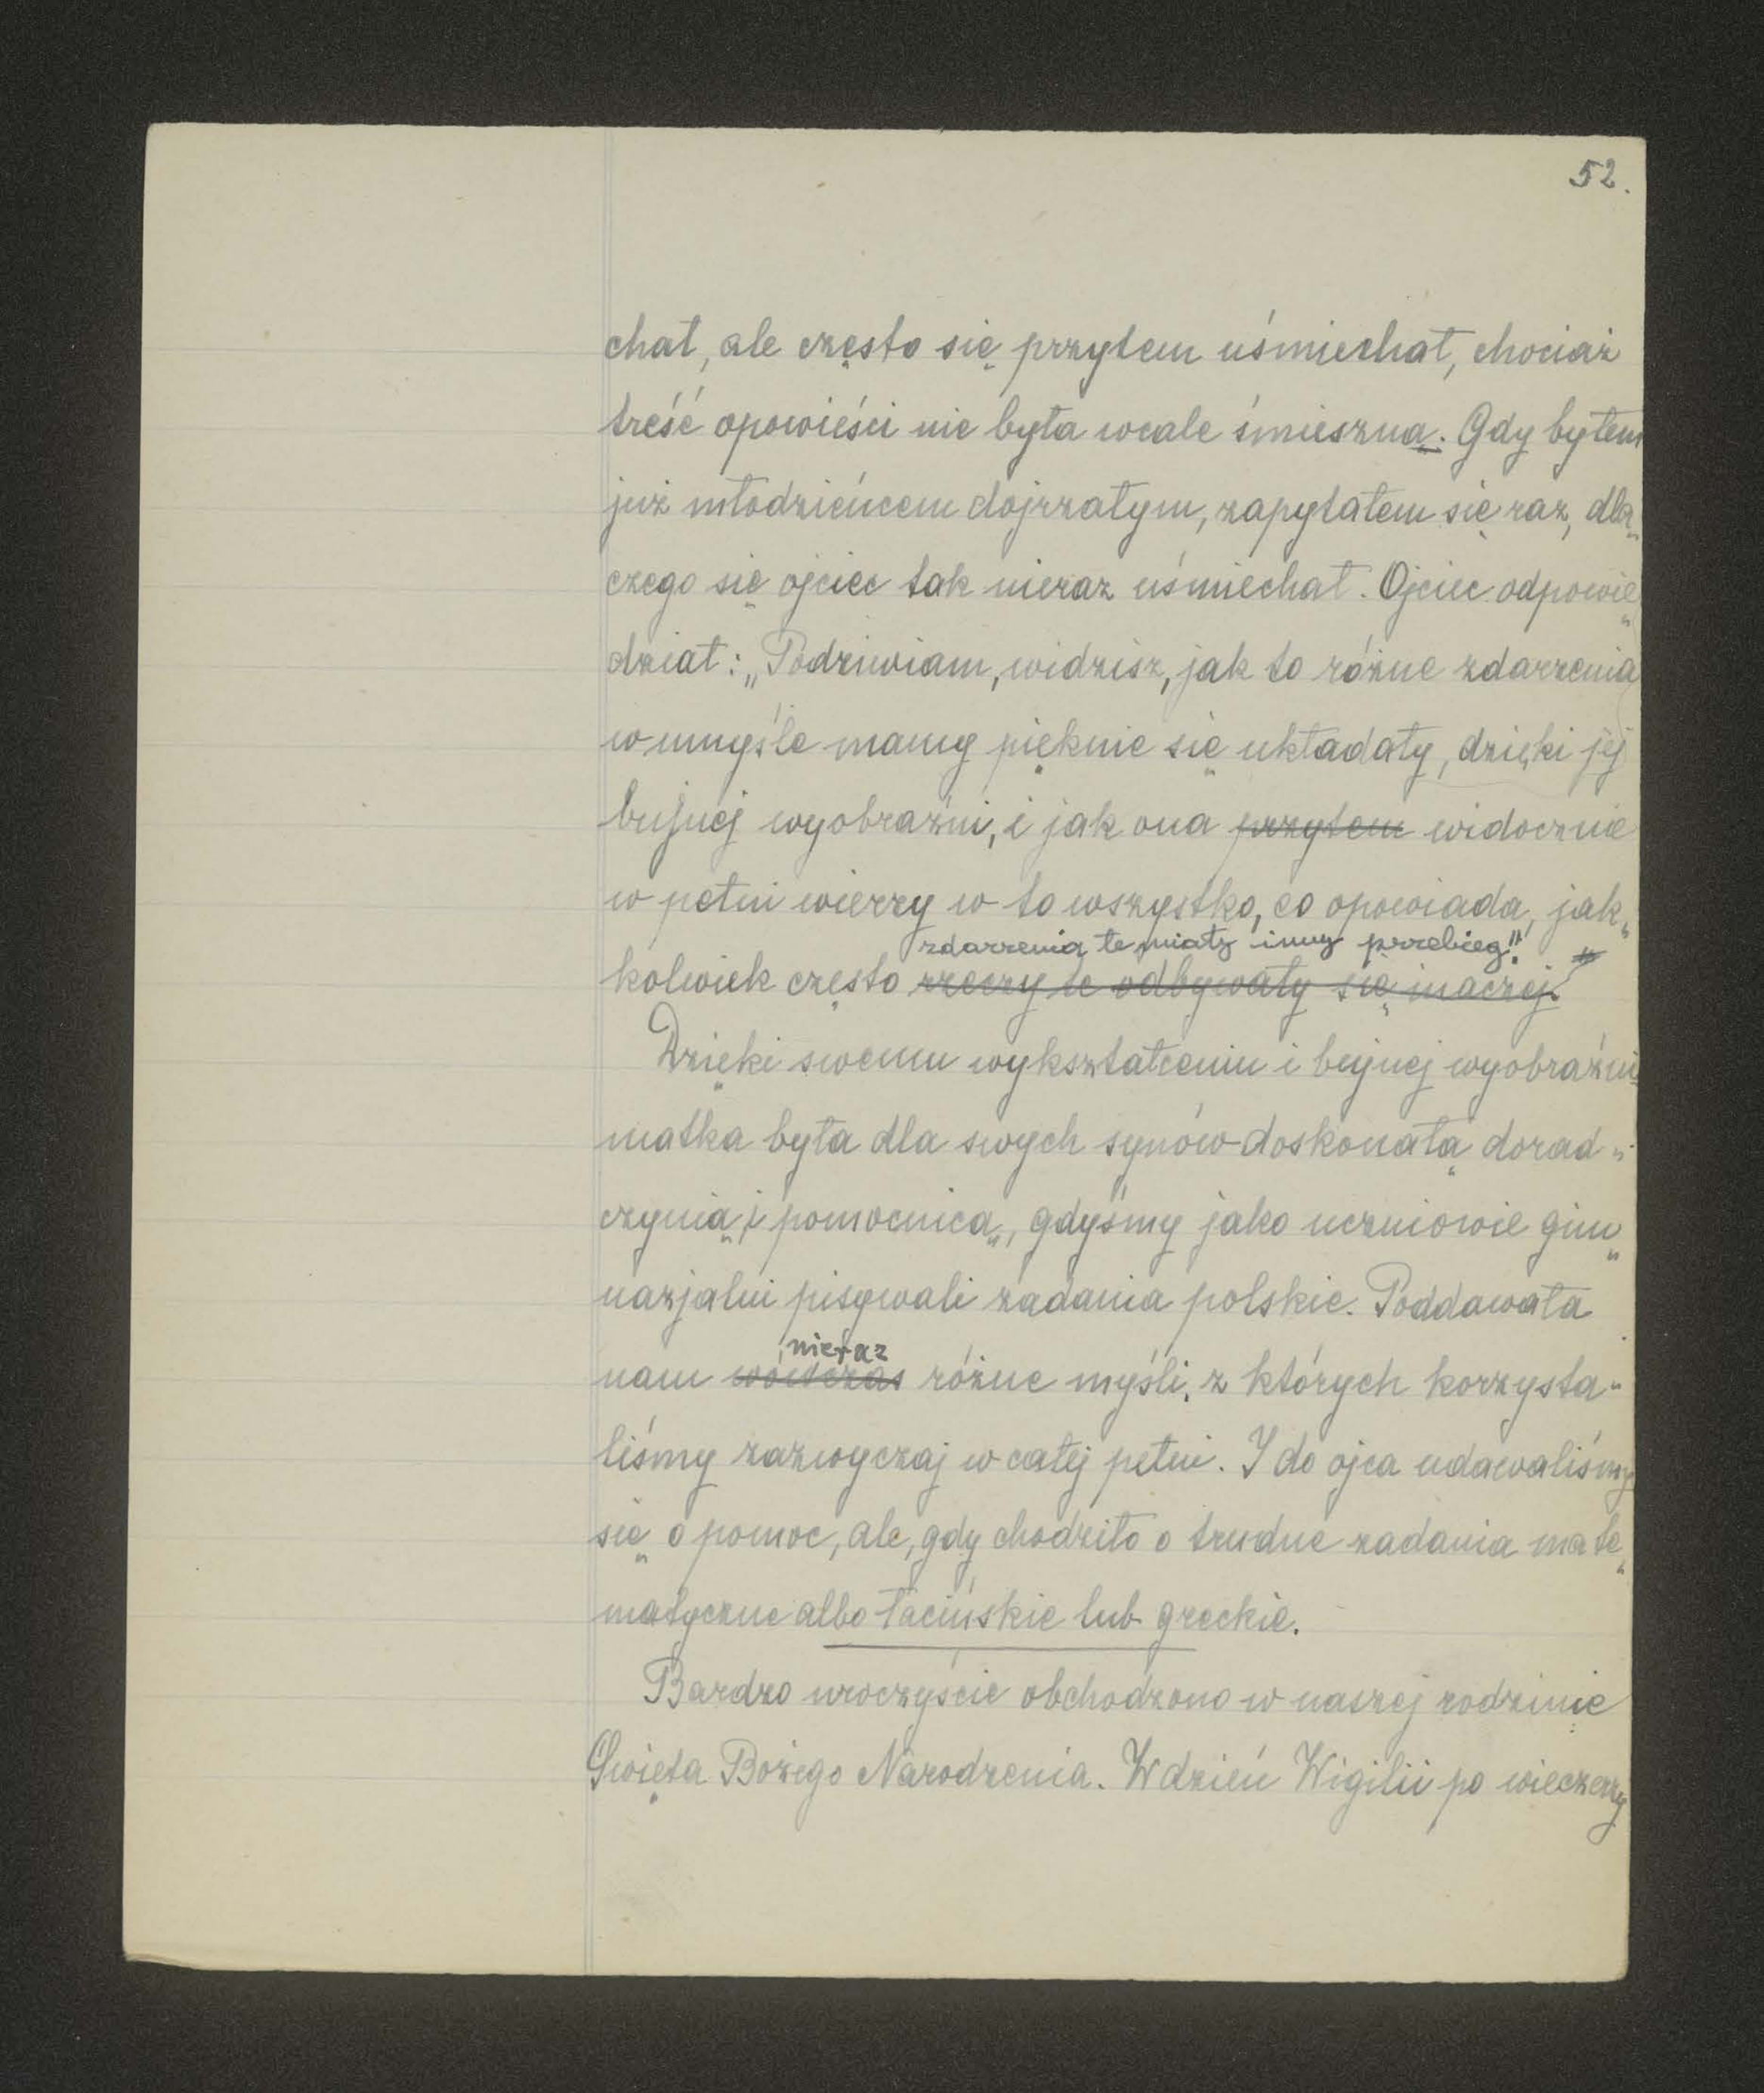 52.
chał, ale często się przytem uśmiechał, chociaż
treść opowieści nie była wcale śmieszna. Gdy byłem
już młodzieńcem dojrzałym, zapytałem się raz, dla„
czego się ojciec tak nieraz uśmiechał. Ojciec odpowie„
dział: „Podziwiam, widzisz, jak to różne zdarzenia
w umyśle mamy pięknie się układały, dzięki jej
bujnej wyobraźni, i jak ona przytem widocznie
w pełni wierzy w to wszystko, co opowiada, jak„
zdarzenia te miały inny przebieg."
kolwiek często rzeczy te odbywały się inaczej."
Dzięki swemu wykształceniu i bujnej wyobraźni
matka była dla swych synów doskonałą dorad„
czynią i pomocnicą, gdyśmy jako uczniowie gim„
nazjalni pisywali zadania polskie. Poddawała
nieraz
nam wówczas różne myśli, z których korzysta-
liśmy zazwyczaj w całej pełni. I do ojca udawaliśmy
się o pomoc, ale, gdy chodziło o trudne zadania mate„
matyczne albo łacińskie lub greckie.
Bardzo uroczyście obchodzono w naszej rodzinie
Święta Bożego Narodzenia. W dzień Wigilii po wieczerzy